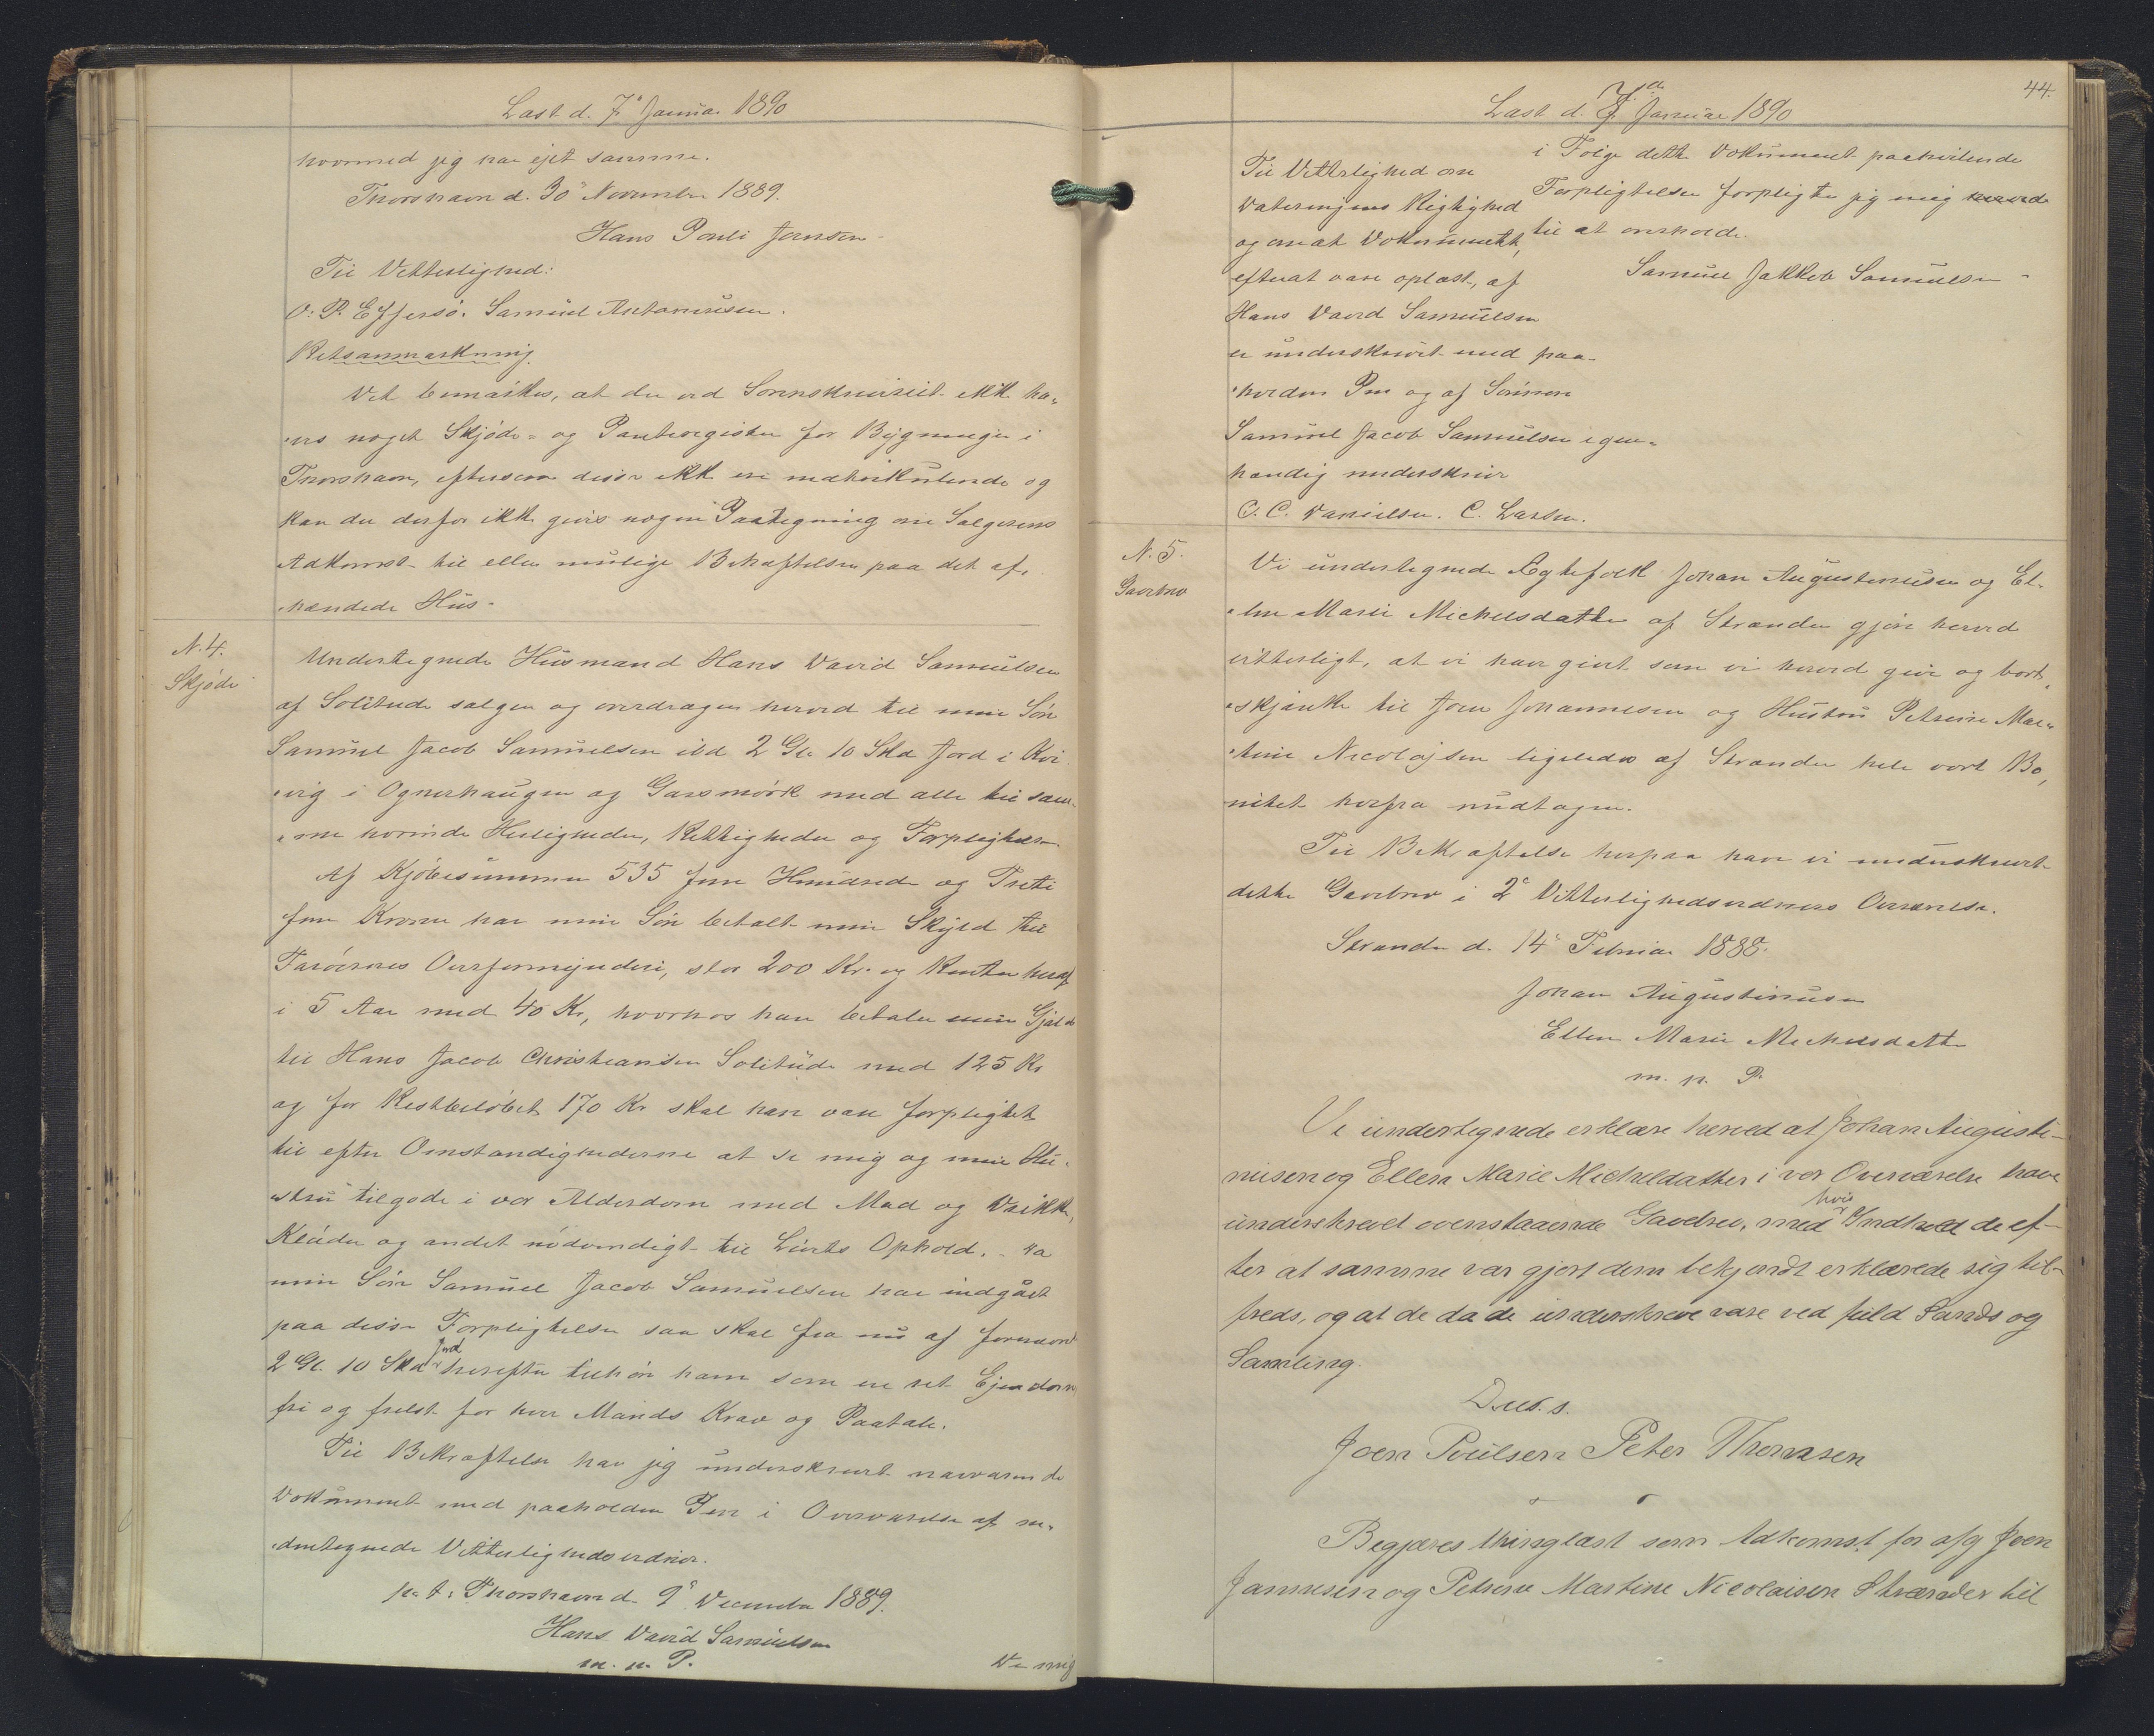 Læst d. 7de Januar 1890
hvormed jeg har ejet samme.
Thorshavn d. 30' November 1889.
Hans Pouli Jensen
Til Vitterlighed:
O. P. Effersö. Samuel Antoniusen.
Retsanmærkning.
Det bemærkes, at der ved Sorenskriveriet ikke ha-
ves noget Skjöde- og Panteregister for Bygninger i
Thorshavn, eftersom disse ikke ere matrikulerede og
kan der derfor ikke gives nogen Paategning om Sælgerens
Adkomst til eller mulige Behæftelser paa det af-
hændede Hus.
N. 4.
Skjöde
Undertegnede Húsmand Hans David Samuelsen
af Solitude sælger og overdrager herved til min Sön
Samuel Jacob Samuelsen ibd 2 Gl. 10 Skd Jord i Kvi-
vig i Ognerhaugen og Gassmörk med alle til sam-
me hörende Herligheder, Rettigheder og Forpligtelser.
Af Kjöbesummen 535 fem Hundrede og Treti
fem Kroner har min Sön betalt min Skyld til
Færöernes Overformynderi, stor 200 Kr. og Renter heraf
i 5 Aar med 40 Kr, hvorhos han betaler min Gjæld
til Hans Jacob Christiansen Solitude med 125 Kr
og for Restbelöbet 170 Kr skal han være forpligtet
til efter Omstændighederne at se mig og min Hu-
stru tilgode i vor Alderdom med Mad og Drikke,
Klæder og andet nödvendigt til Livets Ophold. - Da
min Sön Samuel Jacob Samuelsen har indgået
paa disse Forpligtelser saa skal fra nu af fornævnte
2 Gl. 10 Skd Jord herefter tilhöre ham som en ret Ejendom
fri og frelst for hver Mands Krav og Paatale.
Til Bekræftelse har jeg underskrevet nærværende
Dokument med paaholden Pen i Overværelse af me-
dundertegnede Vitterlighedsvidner.
p. t. Thorshavn d. 9' December 1889.
Hans David Samuelsen
m. p. P.
De mig
44.
Læst d. 7de Januar 1890
i Fölge dette Dokument paahvilende
Forpligtelser forpligter jeg mig herved
til at overholde.
Samuel Jakkob Samuelsen
Til Vitterlighed om
Dateringens Rigtighed
og om at Dokumentet,
efterat være oplæst, af
Hans David Samuelsen
er underskrevet med paa-
holden Pen og af Sönnen
Samuel Jacob Samuelsen egen-
hændig underskrevet
O. C. Danielsen. C. Larsen.
N. 5.
Gavebrev
Vi undertegnede Ægtefolk Johan Augustinusen og El-
len Marie Michelsdatter af Strænder gjöre herved
vitterligt, at vi have givet som vi herved give og bort-
skjænke til Joen Johannesen og Hustru Petrine Mar-
tine Nicolajsen ligeledes af Strænder hele vort Bo,
intet herfra undtagen.
Til Bekræftelse herpaa have vi underskrevet
dette Gavebrev i 2e Vitterlighedsvidners Overværelse.
Strænder d. 14' Februar 1888.
Johan Augustinusen
Ellen Marie Michelsdatter
m. p. P.
Vi undertegnede erklære herved at Johan Augusti-
nusen og Ellen Marie Micheldatter i vor Overværelse have
underskrevet ovenstaaende Gavebrev, med hvis Indhold de ef-
ter at samme var gjort dem bekjendt erklærede sig til-
freds, og at de da de underskreve vare ved fuld Sands og
Samling.
D. u. s.
Joen Poulsen Peter Thomsen
Begjæres thinglæst som Adkomst for afg Joen
Jannesen og Petrine Martine Nicolaisen Strænder til